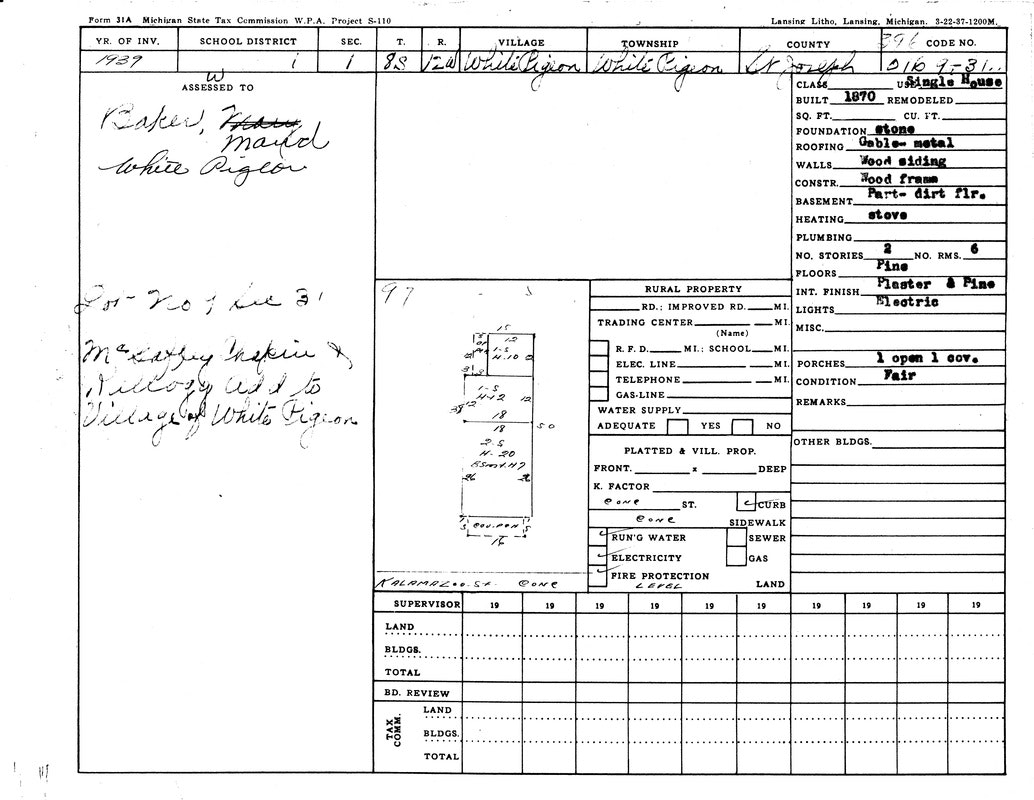 Form 31A Michigan State Tax Commission W.P.A. Project S-110
Lansing Litho, Lansing, Michigan. 3-22-37-1200M.
YR. OF INV. SCHOOL DISTRICT SEC. T. R. VILLAGE TOWNSHIP COUNTY 396 CODE NO.
1939 1 1 8S 12W White Pigeon White Pigeon St Joseph
W
ASSESSED TO
Baker,
Maud
White Pigeon
Lot No 1 Sec 31
&
Kellogg Add to
Village of White Pigeon
CLASS USE Single House
BUILT 1870 REMODELED
SQ. FT. CU. FT.
FOUNDATION stone
ROOFING Gable- metal
WALLS Wood siding
CONSTR. Wood frame
BASEMENT Part- dirt flr.
HEATING stove
PLUMBING
NO. STORIES 2 NO. RMS. 6
FLOORS Pine
INT. FINISH Plaster & Pine
LIGHTS Electric
MISC.
PORCHES 1 open 1 cov.
CONDITION Fair
REMARKS
OTHER BLDGS.
97
15
12
1-S
H-10
1-S
H-12 12
18
18
50
2-S
H-20
26
16
KALAMAZOO-St.
RURAL PROPERTY
RD.; IMPROVED RD. MI.
TRADING CENTER MI.
(Name)
R. F. D. MI.; SCHOOL MI.
ELEC. LINE MI.
TELEPHONE MI.
GAS-LINE
WATER SUPPLY
ADEQUATE YES NO
PLATTED & VILL. PROP.
FRONT. x DEEP
K. FACTOR
ST. CURB
SIDEWALK
RUN'G WATER SEWER
ELECTRICITY GAS
FIRE PROTECTION
LEVEL LAND
SUPERVISOR 19 19 19 19 19 19 19 19 19 19
LAND
BLDGS.
TOTAL
BD. REVIEW
TAX COMM.
LAND
BLDGS.
TOTAL